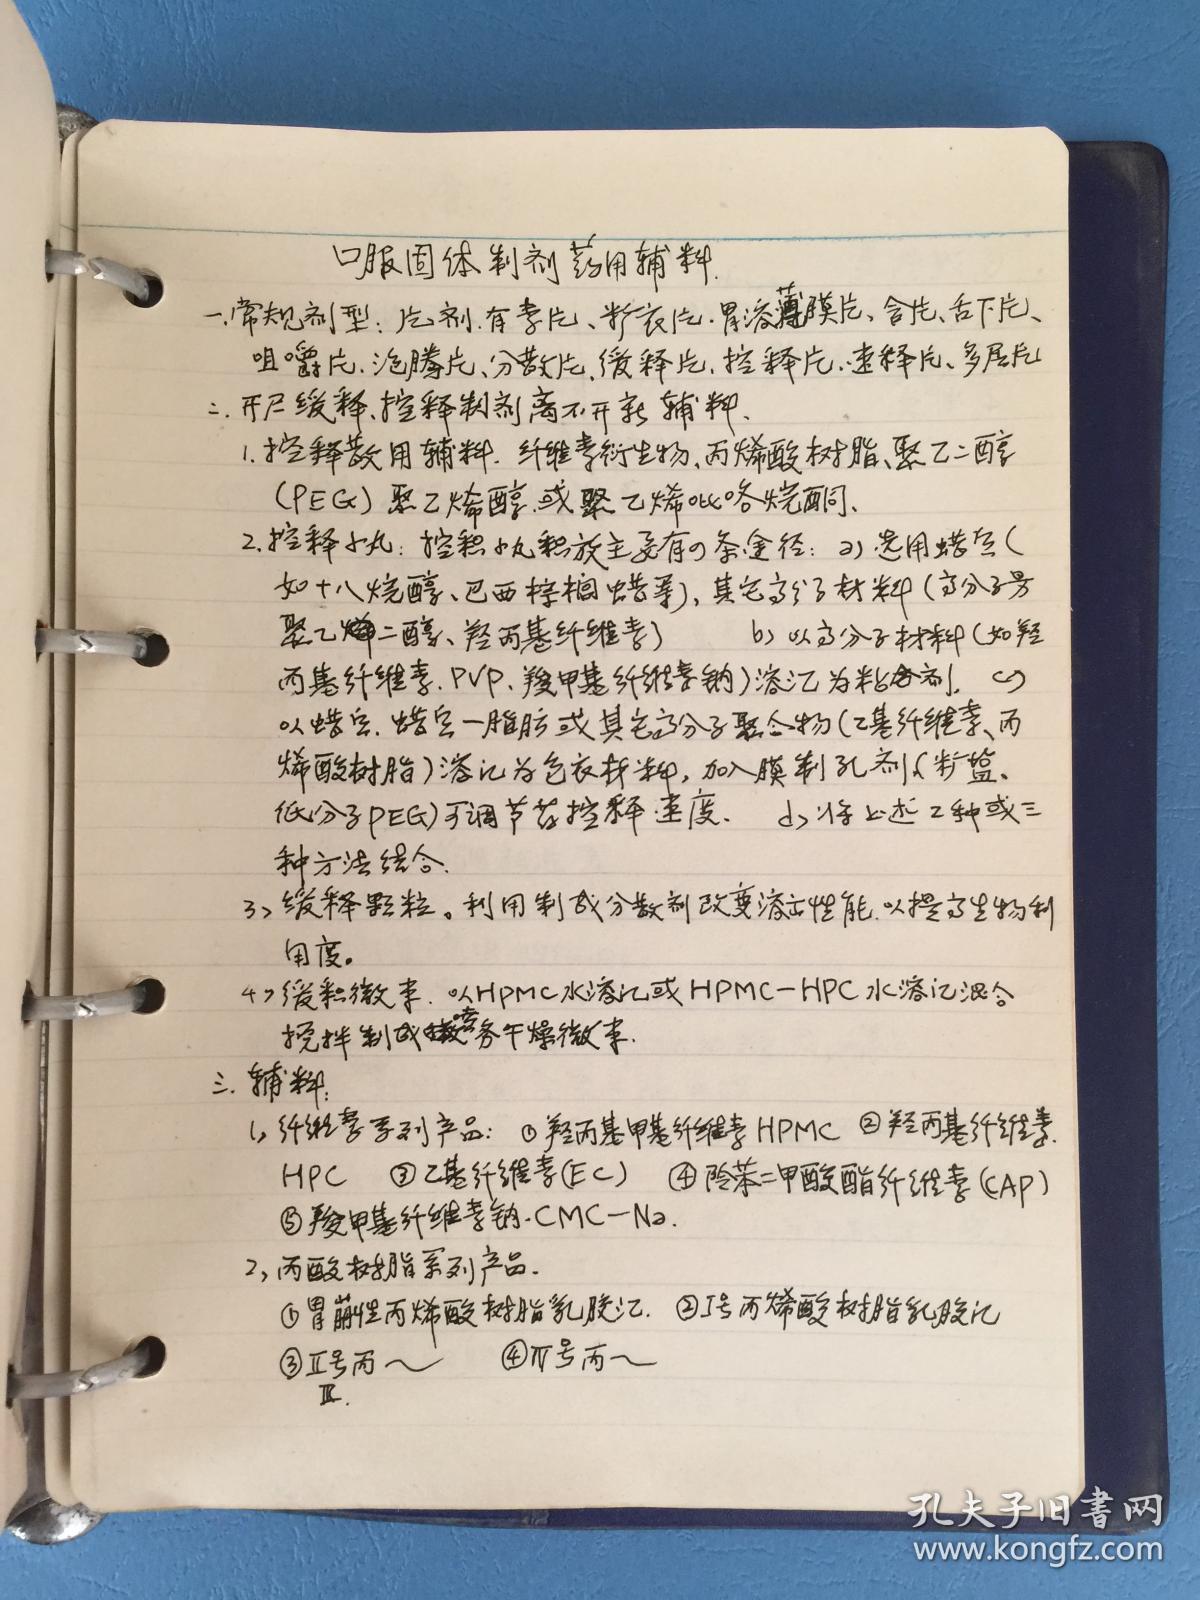 口服固体制剂药用辅料.
一.常规剂型:片剂.有素片、糖衣片.胃溶薄膜片、含片、舌下片、
咀嚼片.泡腾片、分散片、缓释片.控释片.速释片、多层片
二.开展缓释、控释制剂离不开新辅料.
1.控释散用辅料.纤维素衍生物、丙烯酸树脂、聚乙二醇
(PEG)聚乙烯醇.或聚乙烯吡咯烷酮.
2.控释小丸:控释小丸释放主要有四条途径:a)选用蜡质(
如十八烷醇、巴西棕榈蜡等),其它高分子材料(高分子号
聚乙二醇、羟丙基纤维素) b)以高分子材料(如羟
丙基纤维素.PVP.羧甲基纤维素钠)溶液为粘合剂. c)
以蜡质.蜡质一脂肪或其它高分子聚合物(乙基纤维素、丙
烯酸树脂)溶液为包衣材料,加入膜制孔剂(糖盐、
低分子PEG)可调节药控释速度. d)将上述2种或三
种方法结合.
3)缓释颗粒。利用制成分散剂改变溶出性能.以提高生物利
用度。
4)缓释微末.以HPMC水溶液或HPMC-HPC水溶液混合
搅拌制成喷雾干燥微末.
三.辅料:
1)纤维素系列产品:①羟丙基甲基纤维素HPMC ②羟丙基纤维素.
HPC ③乙基纤维素(EC) ④酞苯二甲酸酯纤维素(CAP)
⑤羧甲基纤维素钠.CMC-Na.
2)丙酸树脂系列产品.
①胃崩性丙烯酸树脂乳胶液. ②I号丙烯酸树脂乳胶液
③II号丙~ ④IV号丙~
III.
孔夫子旧书网
www.kongfz.com